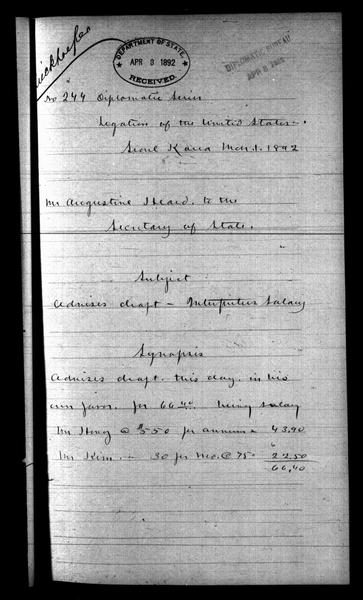 DEPARTMENT OF STATE.
APR 8 1892
RECEIVED.
DIPLOMATIC BUREAU
APR 8 1892
No 244 Diplomatic Series
Legation of the United States.
Seoul Korea Mar. 1. 1892
Mr Augustine Heard. to the
Secretary of State.
Subject
Advises draft - Interpreters Salary
Synopsis
Advises draft. this day. in his
own favor. for 66 40 being salary
Mr Hong @ $550 per annum = 43.90
Mr Kim. - 30 per mo. @ 75 = 22.50
66,40